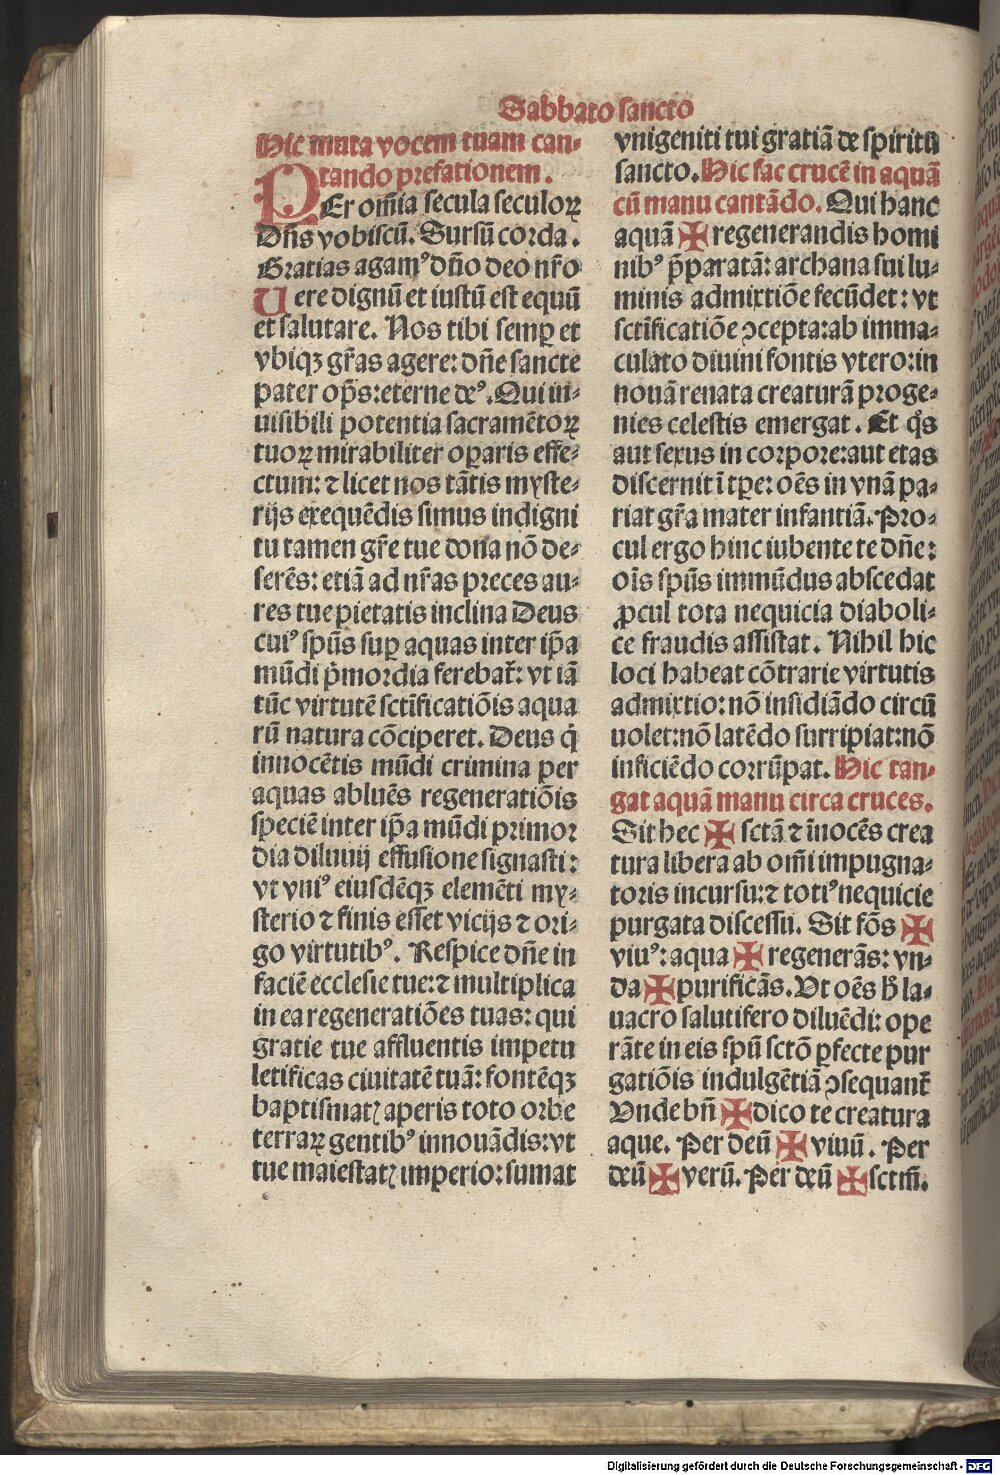 Sabbato sancto
Hic muta vocem tuam can⸗
tando prefationem.
PEr om̄ia secula seculoꝝ
Dn̄s vobiscū. Sursū corda.
Gratias agamꝰ dn̄o deo nr̄o
Uere dignū et iustū est equū
et salutare. Nos tibi semꝑ et
vbiqꝫ gr̄as agere: dn̄e sancte
pater op̄s: eterne deꝰ. Qui in⸗
uisibili potentia sacramētoꝝ
tuoꝝ mirabiliter oꝑaris effe⸗
ctum: ⁊ licet nos tātis myste⸗
rijs exequēdis simus indigni
tu tamen gr̄e tue dona nō de⸗
serēs: etiā ad nr̄as preces au⸗
res tue pietatis inclina Deus
cuiꝰ spūs suꝑ aquas inter ip̄a
mūdi p̄mordia ferebat̄: vt iā
tūc virtutē sctīficatiōis aqua
rū natura cōciperet. Deus q̇
innocētis mūdi crimina per
aquas abluēs regeneratiōis
speciē inter ip̄a mūdi primor
dia diluuij effusione signasti:
vt vniꝰ eiusdēqꝫ elemēti my⸗
sterio ⁊ finis esset vicijs ⁊ ori⸗
go virtutibꝰ. Respice dn̄e in
faciē ecclesie tue: ⁊ multiplica
in ea regeneratiōes tuas: qui
gratie tue affluentis impetu
letificas ciuitatē tuā: fontēqꝫ
baptismatꝭ aperis toto orbe
terraꝝ gentibꝰ innouādis: vt
tue maiestatꝭ imperio: sumat
vnigeniti tui gratiā de spiritu
sancto. Hic fac crucē in aquā
cū manu cantādo. Qui hanc
aquā ✠ regenerandis homi
nibꝰ p̄paratā: archana sui lu⸗
minis admixtiōe fecūdet: vt
sctīficatiōe ꝯcepta: ab imma⸗
culato diuini fontis vtero: in
nouā renata creaturā proge⸗
nies celestis emergat. Et q̊s
aut sexus in corpore: aut etas
discernit ī tꝑe: oēs in vnā pa⸗
riat gr̄a mater infantiā. Pro⸗
cul ergo hinc iubente te dn̄e:
oīs spūs immūdus abscedat
ꝓcul tota nequicia diaboli⸗
ce fraudis assistat. Nihil hic
loci habeat cōtrarie virtutis
admixtio: nō insidiādo circū
uolet: nō latēdo surripiat: nō
inficiēdo corrūpat. Hic tan⸗
gat aquā manu circa cruces.
Sit hec ✠ sctā ⁊ īnocēs crea
tura libera ab om̄i impugna⸗
toris incursu: ⁊ totiꝰ nequicie
purgata discessu. Sit fōs ✠
viuꝰ: aqua ✠ regenerās: vn⸗
da ✠ purificās. Vt oēs h̄ la⸗
uacro salutifero diluēdi: ope
rāte in eis spū sctō ꝑfecte pur
gatiōis indulgētiā ꝯsequant̄
Vnde bn̄ ✠ dico te creatura
aque. Per deū ✠ viuū. Per
deū ✠ verū. Per deū ✠ sctm̄.
Digitalisierung gefördert durch die Deutsche Forschungsgemeinschaft - DFG